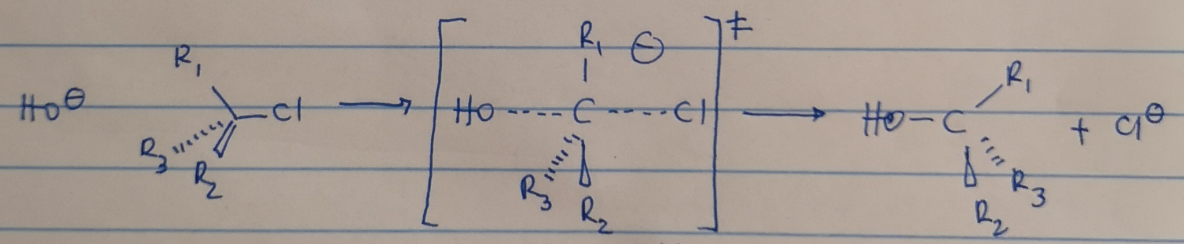 HO⊖ R₁ R₃ R₂ Cl → [HO----C----Cl R₁ ⊖ R₃ R₂]‡ → HO-C R₁ R₃ R₂ + Cl⊖